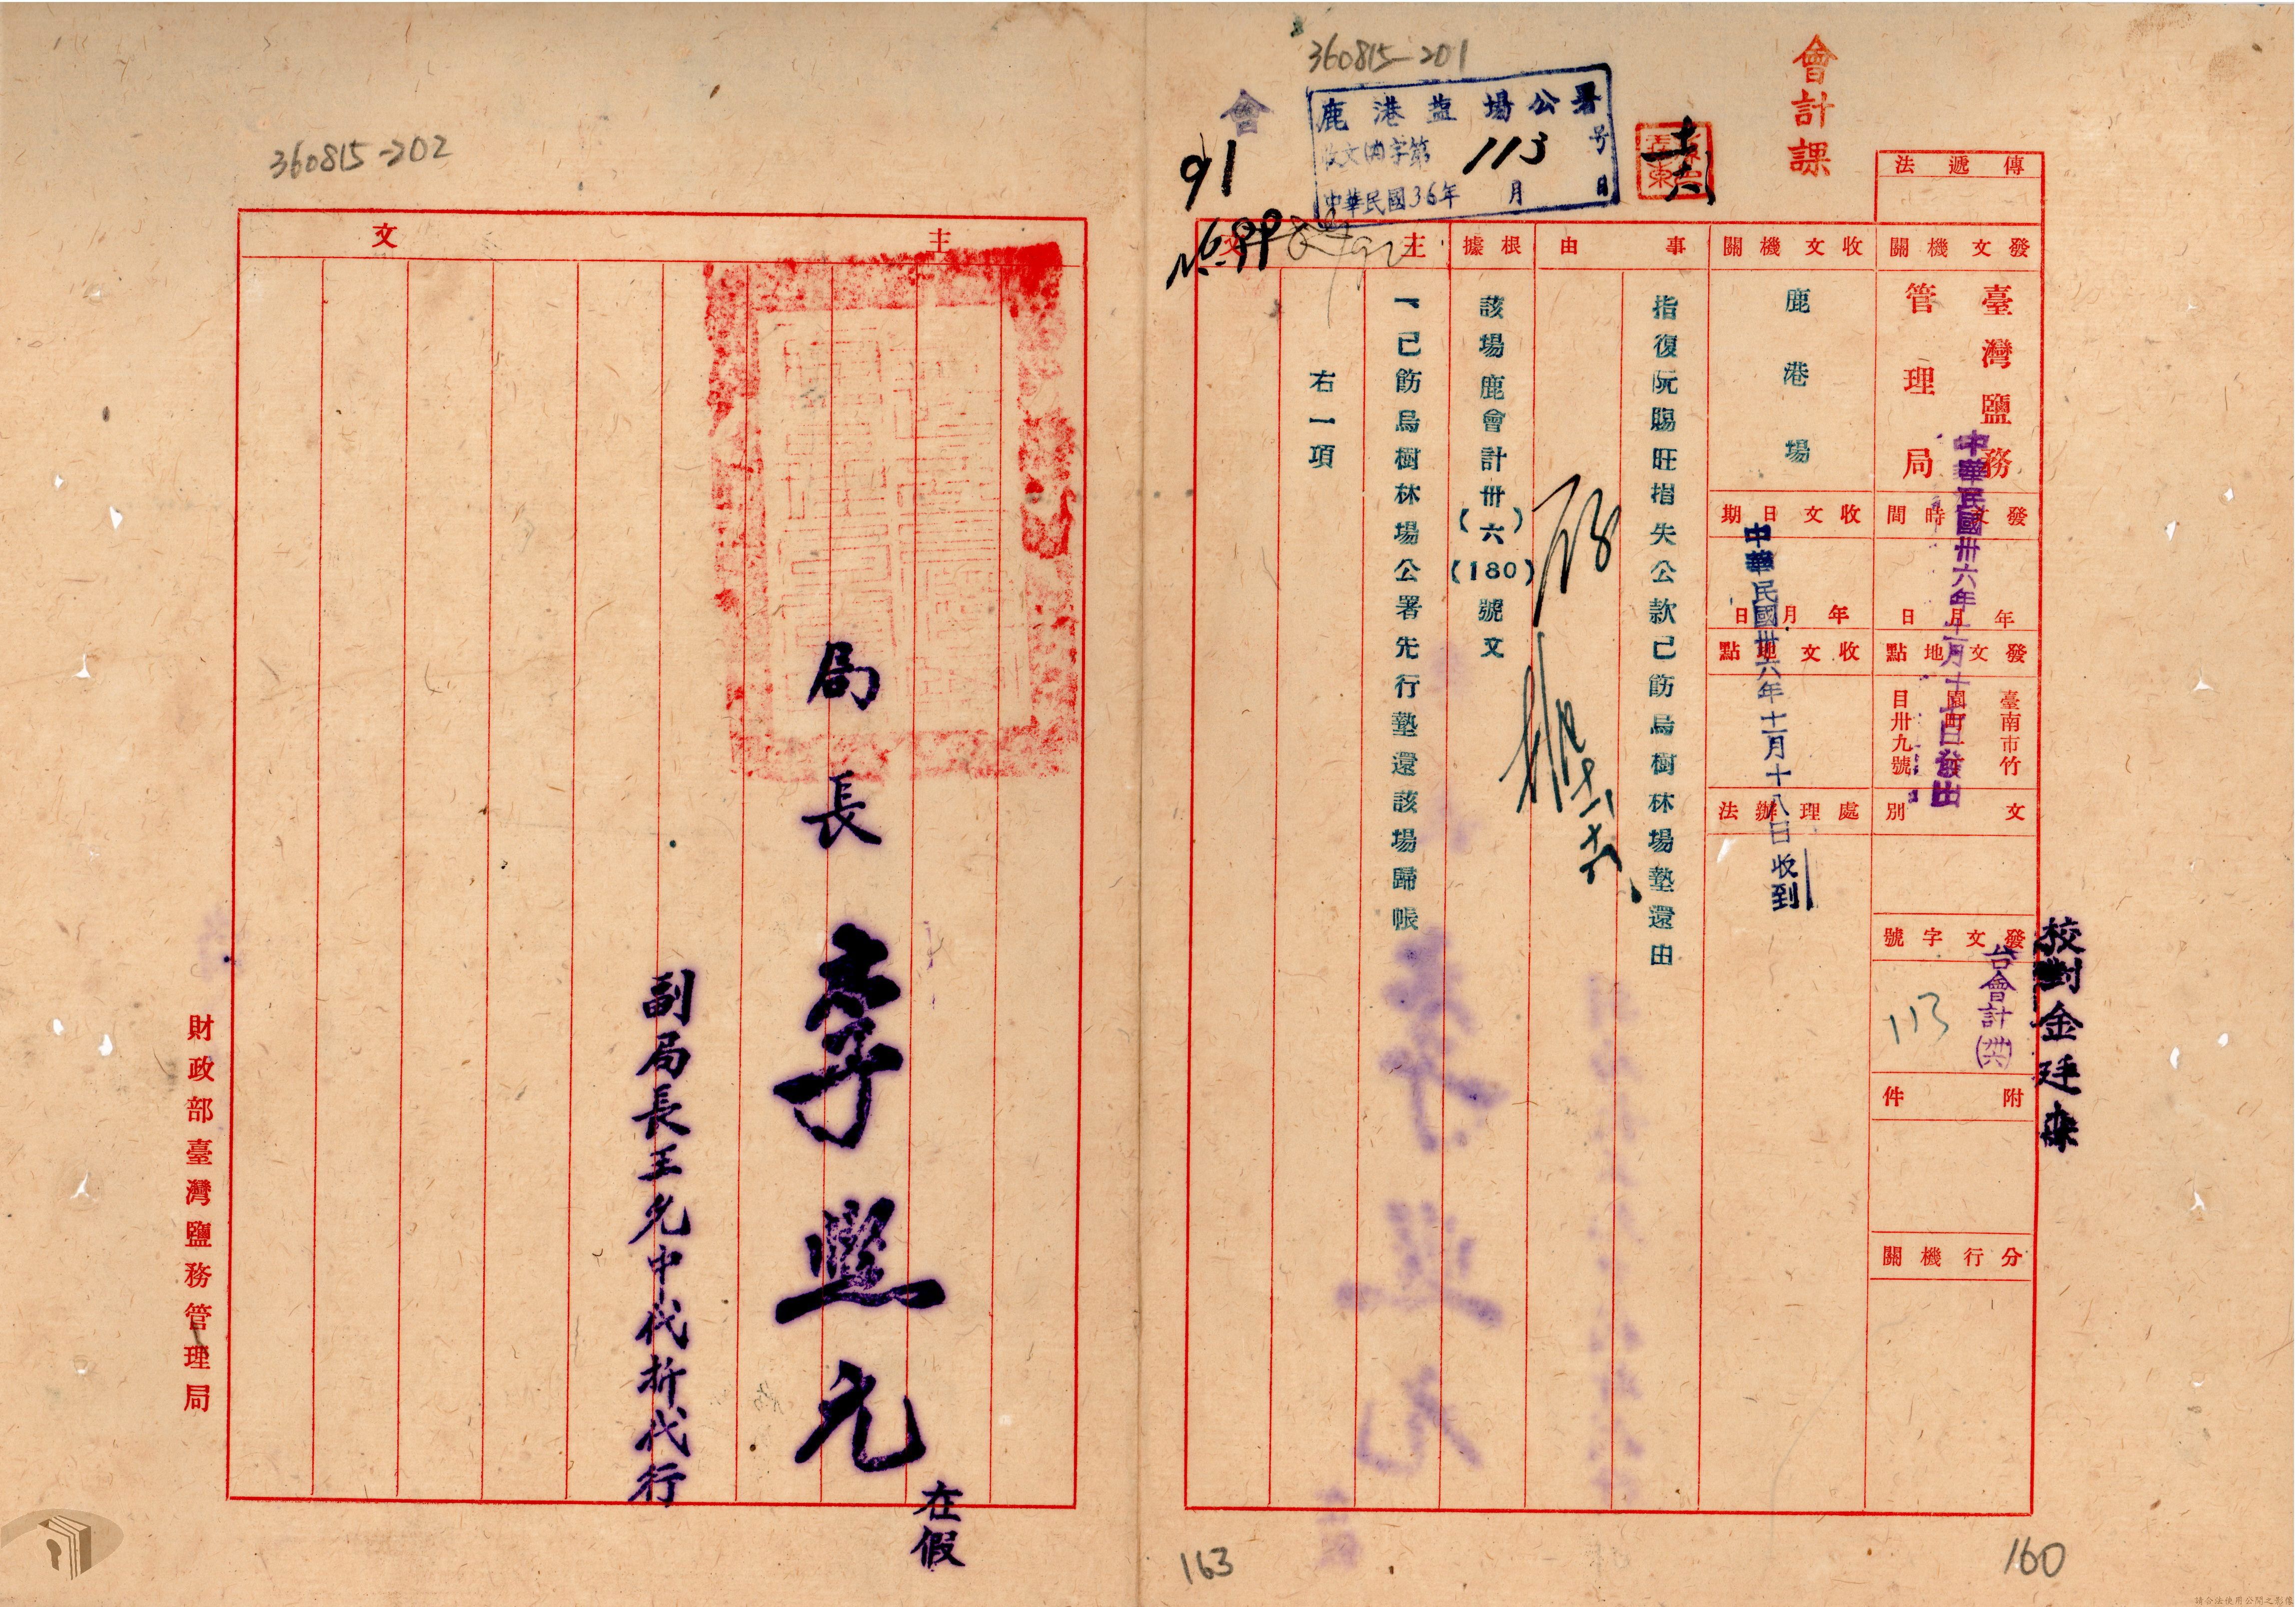 360815-201
會計課
會
91
鹿港盐場公署
收文(內)字第113号
中華民國36年 月 日
傳遞法
發文機關
臺灣鹽務
管理局
發文時間
年月日
中華民國卅六年十一月十 日發出
發文地點
臺南市竹
園町
目卅九號
文別
發文字號
台會計(卅六)
113
附件
分行機關
校對金廷
收文機關
鹿港場
收文日期
年月日
中華民國卅六年十一月十八日收到
收文地點
處理辦法
事由
指復阮賜旺指失公款已飭烏樹林場墊還由
根據
該場鹿會計卅(六)(180)號文
主文
一已飭烏樹林場公署先行墊還該場歸帳
右一項
163
160
360815-202
主文
局長李煕元
在假
副局長王允中代拆代行
財政部臺灣鹽務管理局
請合法使用公開之影像